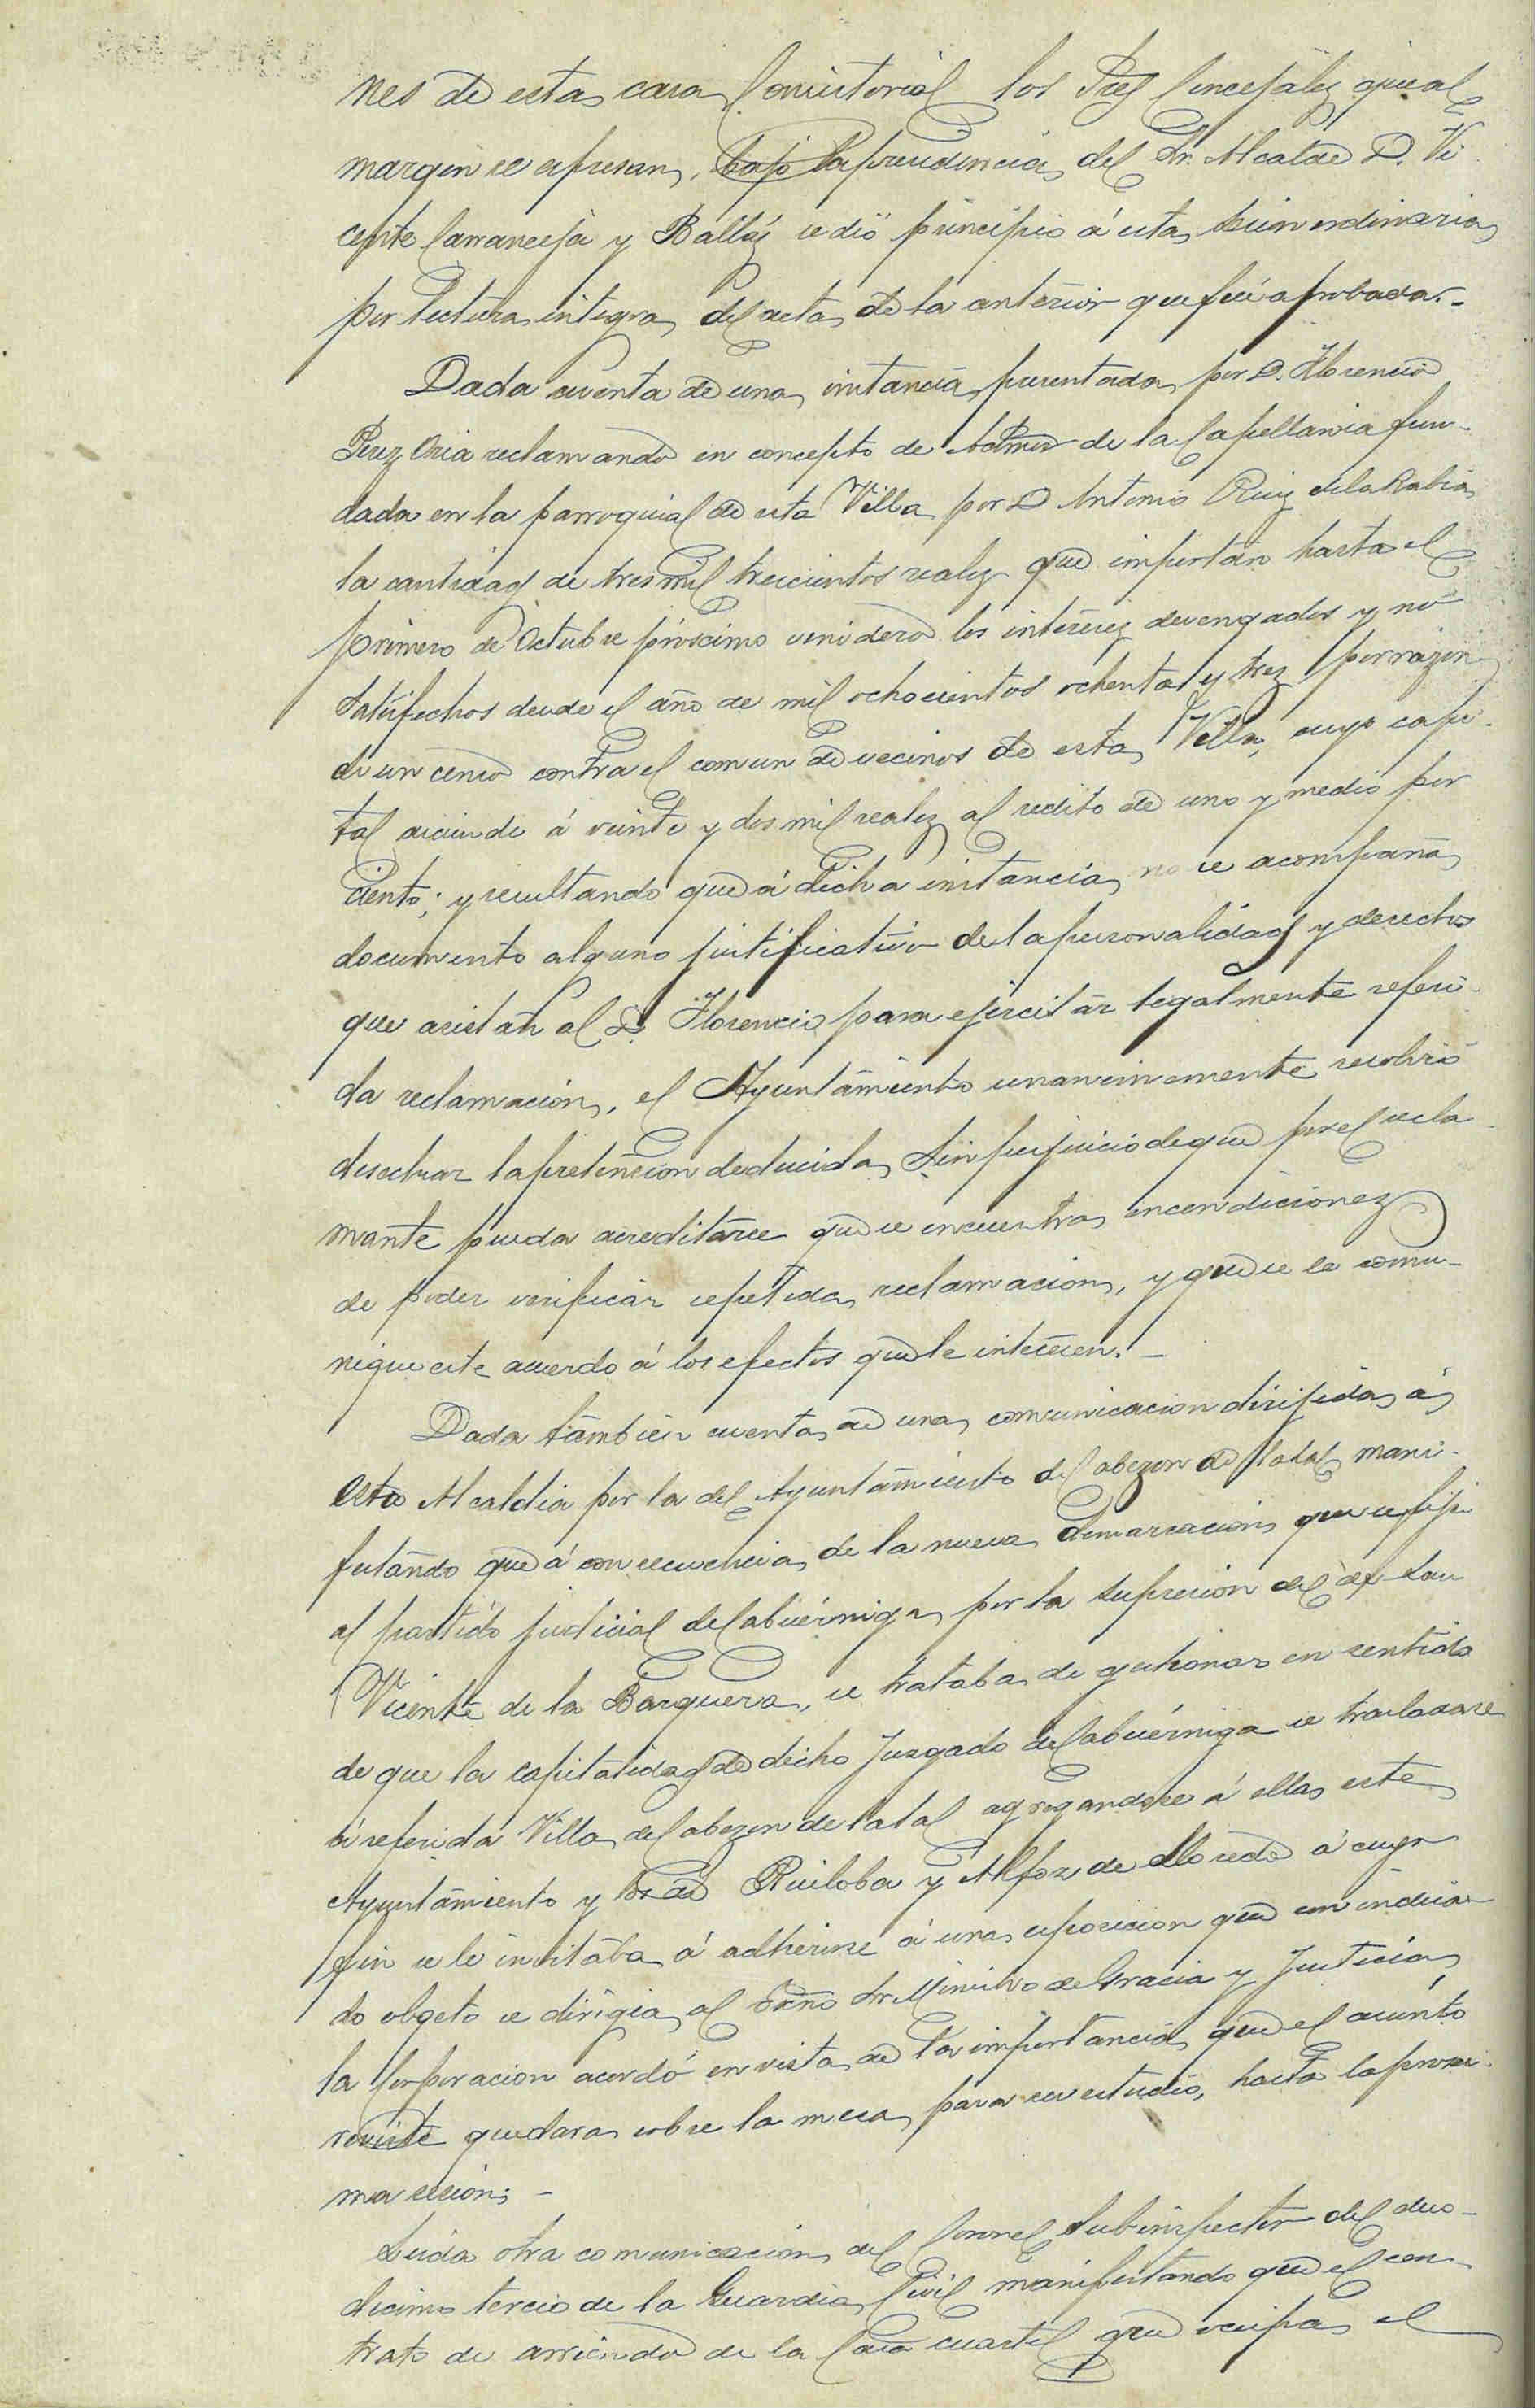 nes de esta casa Consistorial los Sres Concejalez que al
margen se expresan, bajo la presidencia del Sr. Alcalde D. Vi
cente Carranceja y Balléz se dió principio á esta sesion ordinaria
por lectura integra del acta de la anterior que fué aprobada.-
Dada cuenta de una instancia presentada por D. Florencio
Perez Oria reclamando en concepto de Admor de la Capellania fun-
dada en la parroquial de esta Villa por D Antonio Ruiz de la Rabia
la cantidad de tres mil trescientos realez que importan hasta el
primero de Octubre próscimo venidero los interesez devengados y no
satisfechos desde el año de mil ochocientos ochenta y trez por razon
de un censo contra el comun de vecinos de esta Villa, cuyo capi-
tal asciende á veinte y dos mil realez al redito de uno y medio por
ciento; y resultando que á dicha instancia no se acompaña
documento alguno justificativo de la personalidad y derechos
que asistan al D. Florencio para ejercitar legalmente referi-
da reclamacion, el Ayuntamiento unanimemente resolvió
desechar la pretension deducida, sin perjuicio de que por el recla-
mante pueda acreditarse que se encuentra en condicionez
de poder verificar repetida reclamacion, y que se le comu-
nique este acuerdo á los efectos que le interesen.-
Dada tambien cuenta de una comunicacion dirijida á
esta Alcaldia por la del Ayuntamiento de Cabezon de la Sal mani-
festando que á consecuencia de la nueva demarcacion que se fija
al partido judicial de Cabuérniga por la supresion del de San
Vicente de la Barquera, se trataba de gestionar en sentido
de que la capitalidad de dicho Juzgado de Cabuérniga se trasladase
á referida Villa de Cabezon de la Sal agregandose á ella este
Ayuntamiento y los de Ruiloba y Alfoz de Lloredo á cuyo
fin se le invitaba á adherirse á una esposicion que con indica-
do objeto se dirigia al Excmo Sr. Ministro de Gracia y Justicia,
la Corporacion acordó en vista de la importancia que el asunto
reviste quedara sobre la mesa para su estudio, hasta la proxi-
ma sesion;-
Leida otra comunicacion del Coronel Subinspector del duo-
decimo tercio de la Guardia Civil manifestando que el con-
trato de arriendo de la Casa cuartel que ocupa el